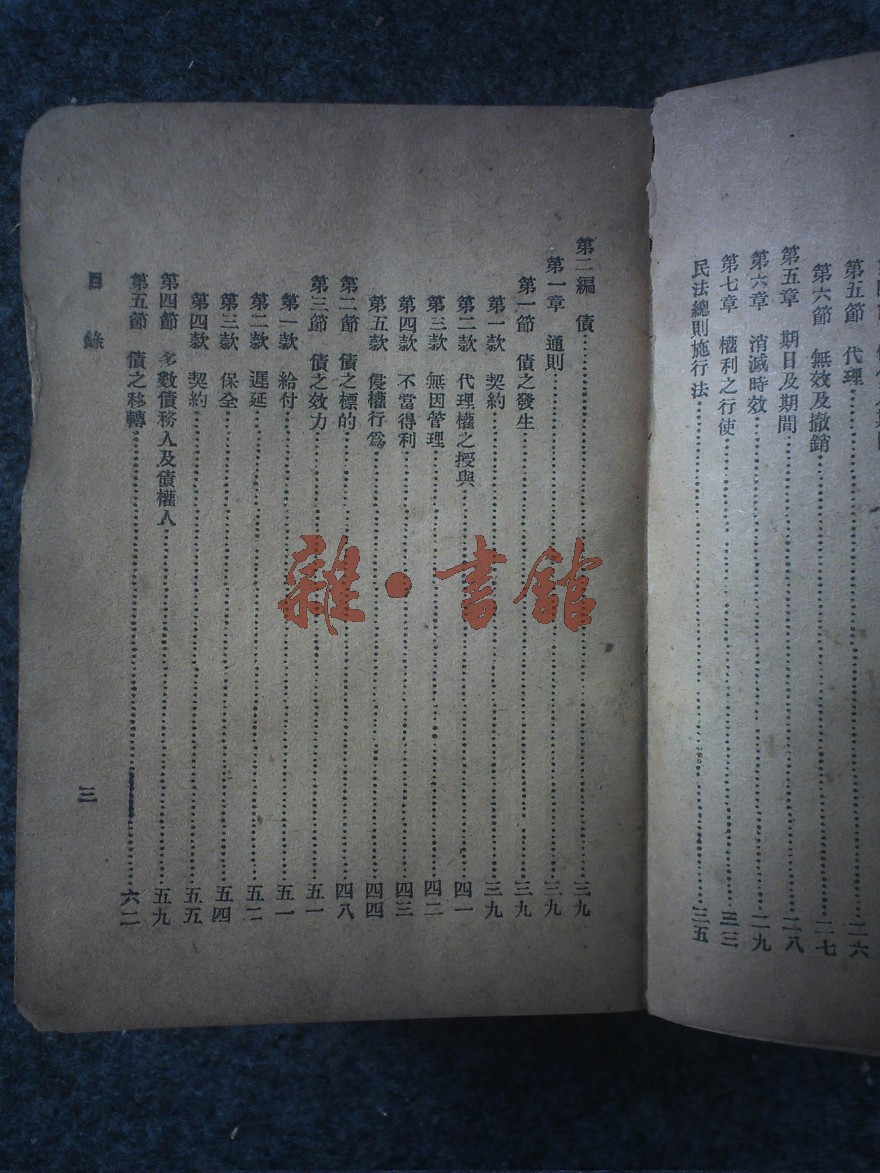 第五節　代理……二六
第六節　無效及撤銷……二七
第五章　期日及期間……二八
第六章　消滅時效……二九
第七章　權利之行使……三三
民法總則施行法……三五
第二編　債……三九
第一章　通則……三九
第一節　債之發生……三九
第一款　契約……三九
第二款　代理權之授與……四一
第三款　無因管理……四二
第四款　不當得利……四三
第五款　侵權行為……四四
第二節　債之標的……四八
第三節　債之效力……五一
第一款　給付……五一
第二款　遲延……五二
第三款　保全……五四
第四款　契約……五五
第四節　多數債務人及債權人……五九
第五節　債之移轉……六二
目錄　三
雜·書館